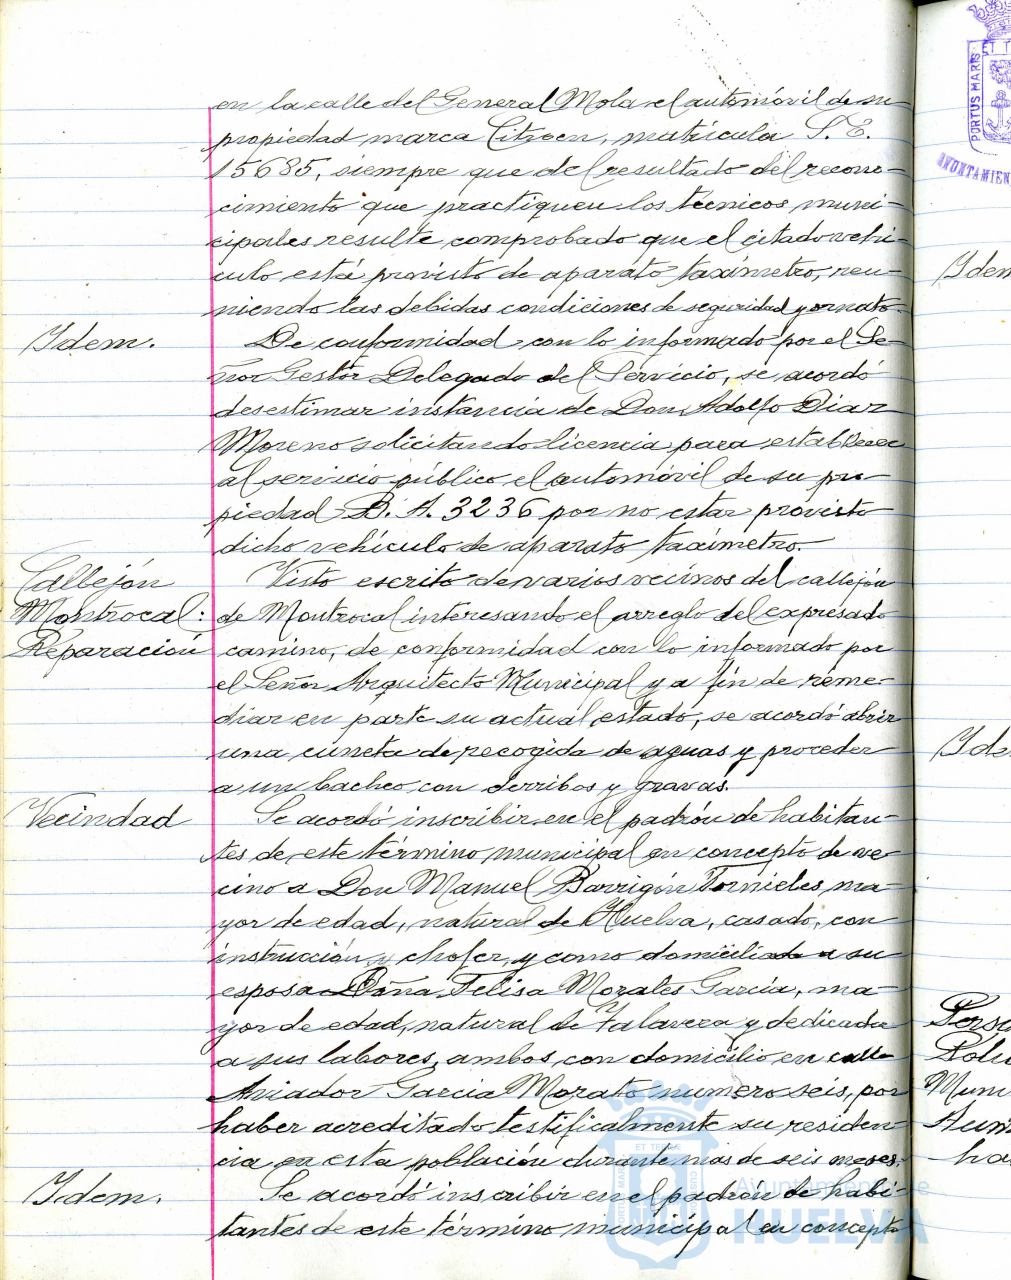 en la calle del General Mola el automóvil de su
propiedad marca Citroen, matrícula S.E.
15685, siempre que del resultado del recono-
cimiento que practiquen los técnicos muni-
cipales resulte comprobado que el citado vehí-
culo está provisto de aparato taxímetro, reu-
niendo las debidas condiciones de seguridad y ornato.
Idem.
De conformidad con lo informado por el Se-
ñor Gestor Delegado del Servicio, se acordó
desestimar instancia de Don Adolfo Diaz
Moreno solicitando licencia para establecer
al servicio público el automóvil de su pro-
piedad B.A. 3236 por no estar provisto
dicho vehículo de aparato taxímetro.
Callejón
Montrocal:
Reparación
Visto escrito de varios vecinos del callejón
de Montrocal interesando el arreglo del expresado
camino, de conformidad con lo informado por
el Señor Arquitecto Municipal y a fin de reme-
diar en parte su actual estado, se acordó abrir
una cuneta de recogida de aguas y proceder
a un bacheo con derribos y gravas.
Vecindad
Se acordó inscribir en el padrón de habitan-
tes de este término municipal en concepto de ve-
cino a Don Manuel Barrigón Tornieles, ma-
yor de edad, natural de Huelva, casado, con
instrucción y chofer, y como domiciliada a su
esposa Doña Felisa Morales García, ma-
yor de edad, natural de Talavera y dedicada
a sus labores, ambos con domicilio en calle
Aviador Garcia Morato numero seis, por
haber acreditado testificalmente su residen-
cia en esta población durante mas de seis meses.
Idem.
Se acordó inscribir en el padrón de habi-
tantes de este término municipal en concepto
PORTUS MARIS
ET T
AYUNTAMIEN
Idem
Ide
Perso
Muni
ha
ET TERRAE
Ayuntamiento de
HUELVA